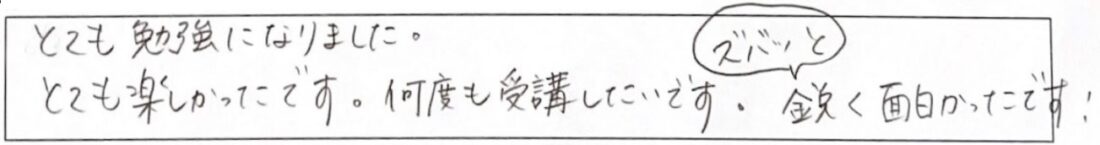 とても勉強になりました。
ズバッと
とても楽しかったです。何度も受講したいです。鋭く面白かったです!